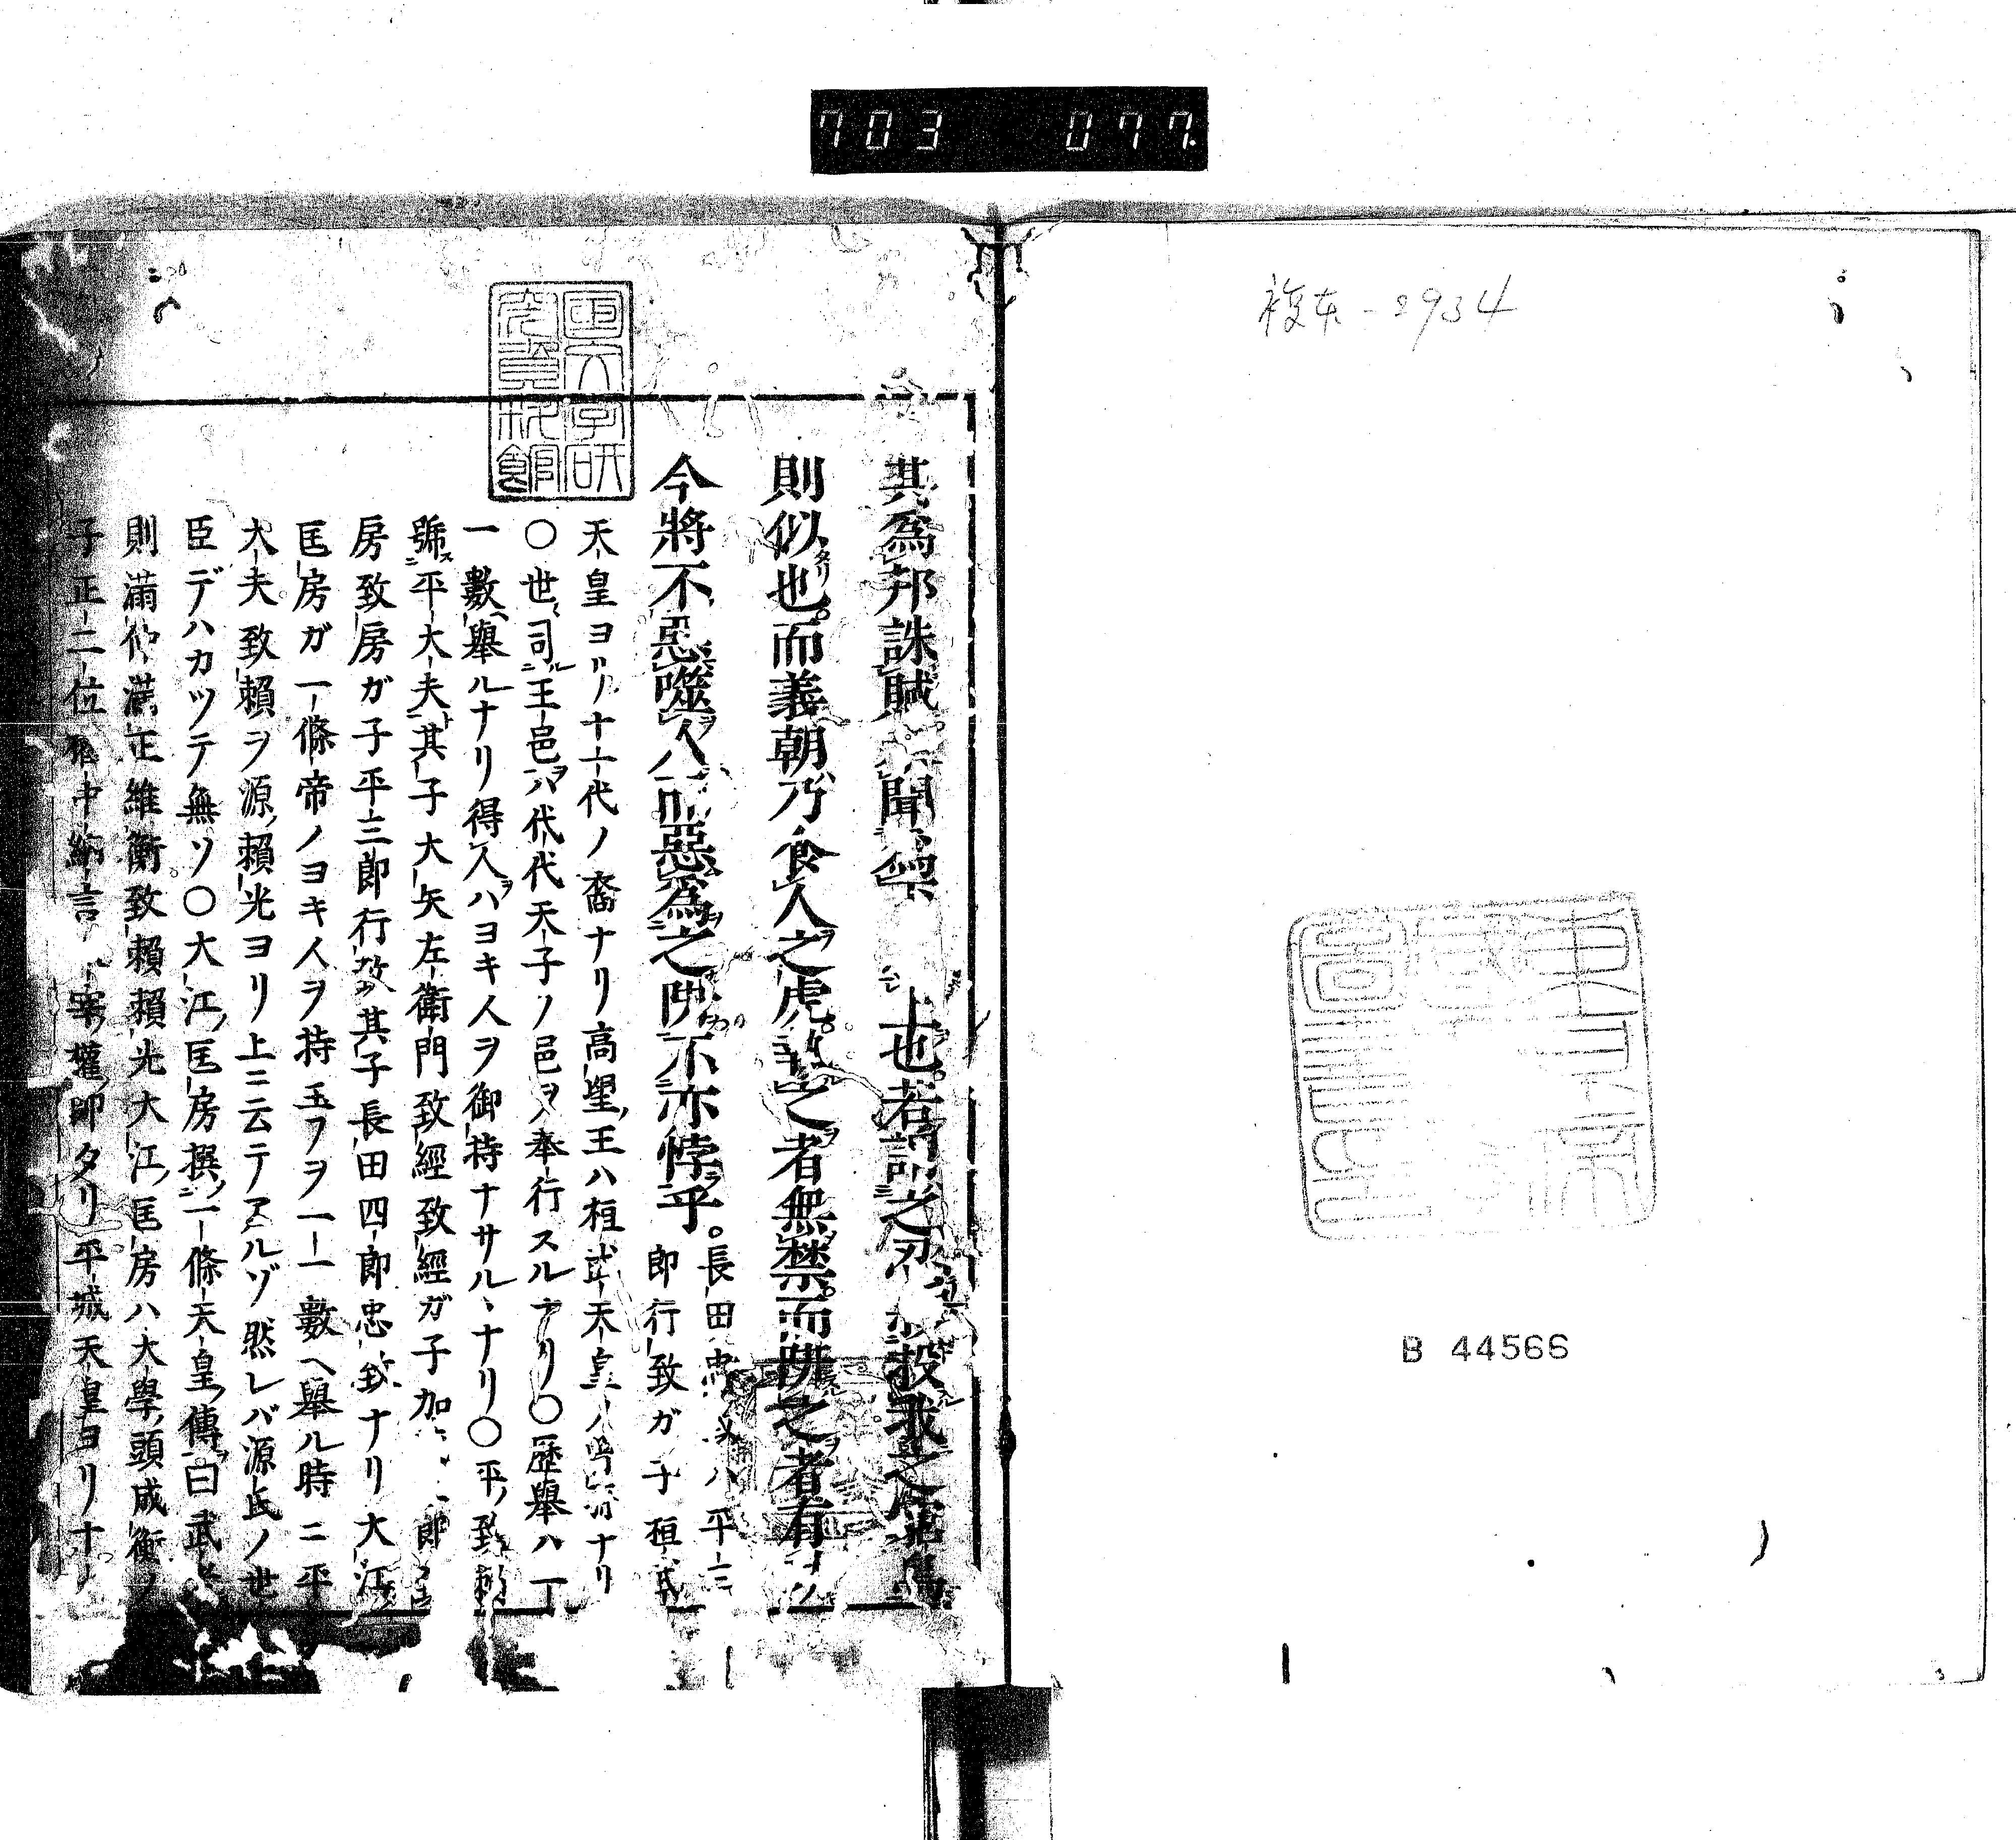 703 077.
複本-2934
B 44566
國文學研
究資料館
其爲邦誅賊 聞 也若 之 投我之
則似也。而義朝乃食人之虎 之者無禁而 之者有
今將不惡噬人而惡爲之 不亦悖乎。
長田忠 ハ平三
郎行致ガ子桓武
天皇ヨリ十一代ノ裔ナリ高望王ハ桓武天皇ノ ナリ
〇世司王邑ハ代代天子ノ邑ヲ奉行スルナリ〇歷舉ハ一
一數舉ルナリ得人ハヨキ人ヲ御持ナサルヽナリ〇平致賴
號平大夫其子大矢左衛門致經致經ガ子加 郎
房致房ガ子平三郎行致其子長田四郎忠致ナリ大江
匡房ガ一條帝ノヨキ人ヲ持玉フヲ一一數ヘ舉ル時ニ平
大夫致賴ヲ源賴光ヨリ上ニ云テアルゾ然レバ源氏ノ世
臣デハカツテ無ソ〇大江匡房撰一條天皇傳曰武
則滿仲滿正維衡致賴賴光大江匡房ハ大學頭成衡ノ
子正二位 中納言 權帥タリ平城天皇ヨリナ